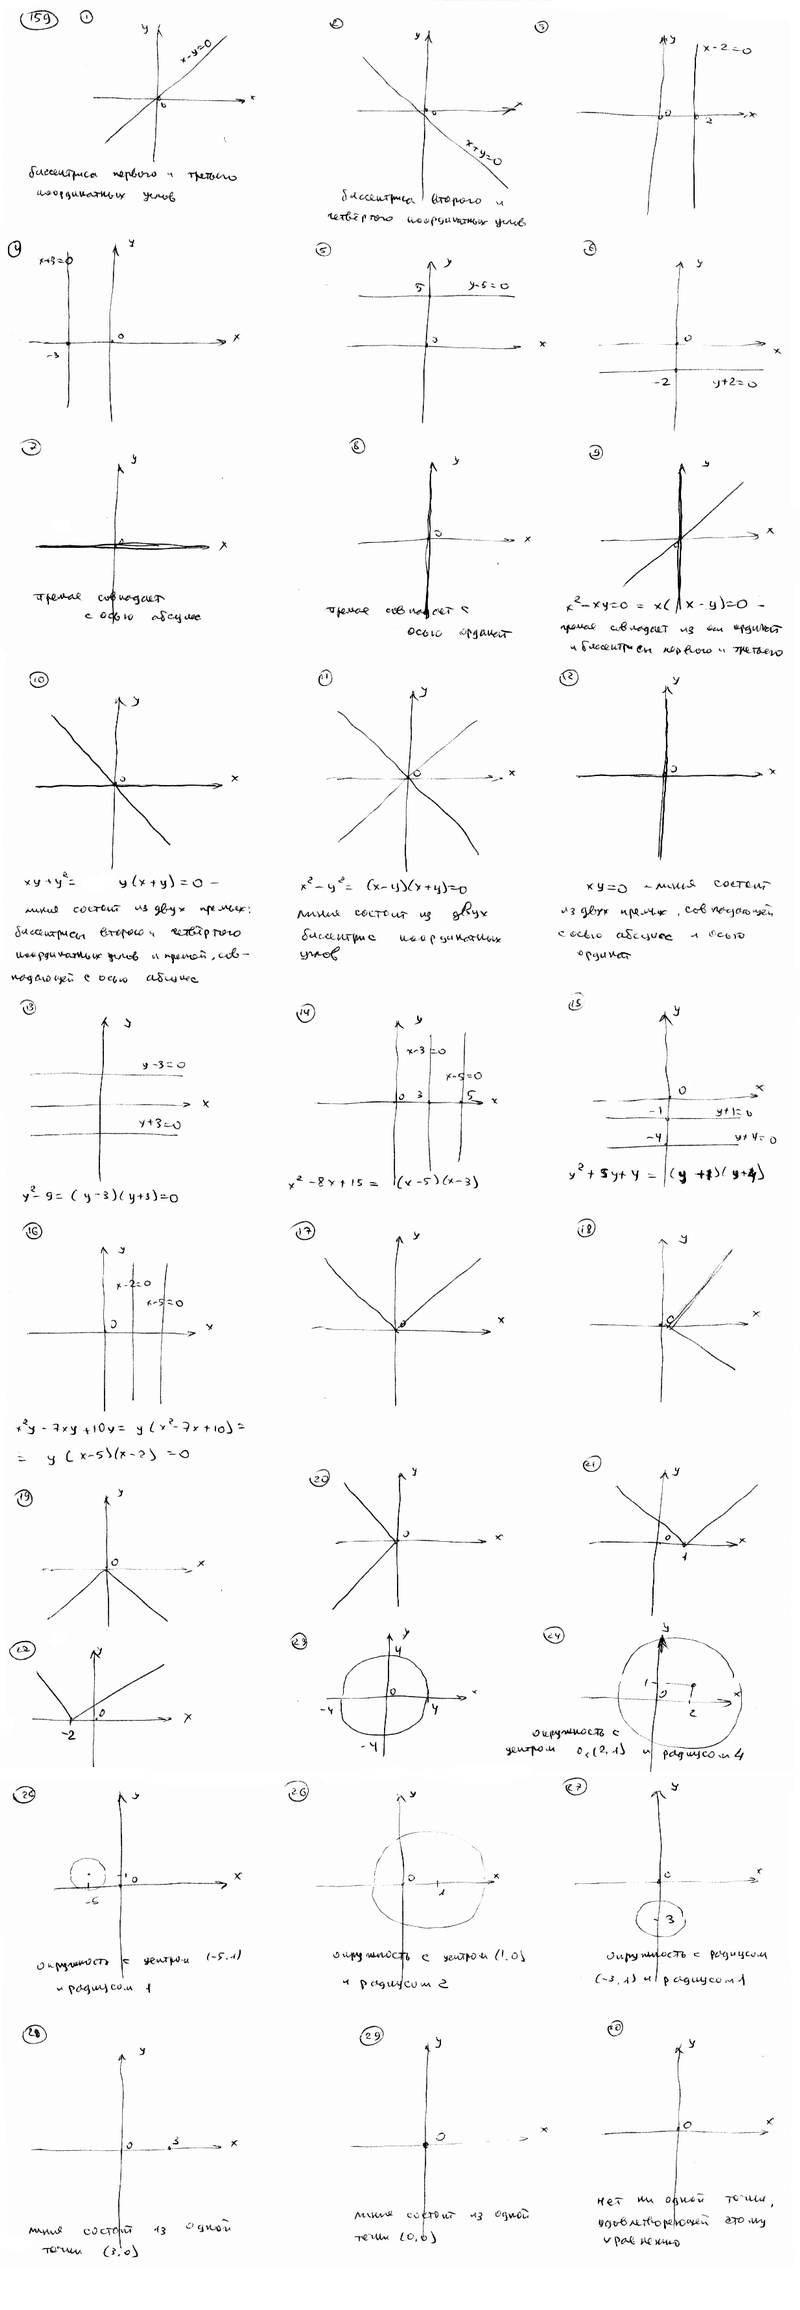 159
1
y
x-y=0
x
0
биссектриса первого и третьего
координатных углов
2
y
x
0
x+y=0
биссектриса второго и
четвёртого координатных углов
3
y
x-2=0
0
2
x
4
y
x+3=0
0
x
-3
5
y
5
y-5=0
0
x
6
y
0
x
-2
y+2=0
7
y
0
x
прямая совпадает
с осью абсцисс
8
y
0
x
прямая совпадает с
осью ординат
9
y
x
x²-xy=0 = x(x-y)=0 -
прямая совпадает из оси ординат
и биссектрисы первого и третьего
10
y
0
x
xy+y²= y(x+y)=0 -
линия состоит из двух прямых:
биссектрисы второго и четвёртого
координатных углов и прямой, сов-
падающей с осью абсцисс
11
y
0
x
x²-y²= (x-y)(x+y)=0
линия состоит из двух
биссектрис координатных
углов
12
y
0
x
xy=0 - линия состоит
из двух прямых, совпадающей
с осью абсцисс и осью
ординат
13
y
y-3=0
x
y+3=0
y²-9=(y-3)(y+3)=0
14
y
x-3=0
x-5=0
0 3 5 x
x²-8x+15= (x-5)(x-3)
15
y
0
x
-1
y+1=0
-4
y+4=0
y²+5y+4 = (y+1)(y+4)
16
y
x-2=0
x-5=0
0
x
x²y-7xy+10y= y(x²-7x+10)=
= y(x-5)(x-2)=0
17
y
0
x
18
y
0
x
19
y
0
x
20
y
0
x
21
y
0
1
x
22
y
0
-2
x
23
y
4
0
-4
4
x
-4
24
y
1
0
2
x
окружность с
центром (2,1) и радиусом 4
25
y
1
0
x
-5
окружность с центром (-5,1)
и радиусом 1
26
y
0
1
x
окружность с центром (1,0)
и радиусом 2
27
y
0
x
-3
окружность с радиусом
(-3,1) и радиусом 1
28
y
0
3
x
линия состоит из одной
точки (3,0)
29
y
0
x
линия состоит из одной
точки (0,0)
30
y
0
x
нет ни одной точки,
удовлетворяющей этому
уравнению